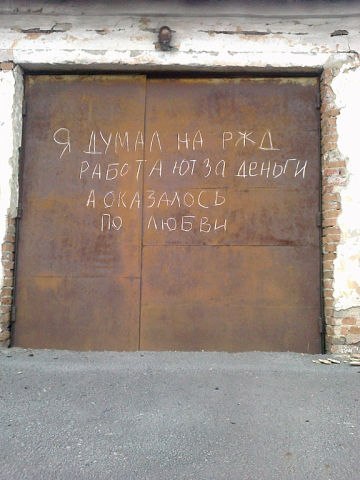 Я ДУМАЛ НА РЖД
РАБОТАЮТ ЗА ДЕНЬГИ
А ОКАЗАЛОСЬ
ПО ЛЮБВИ